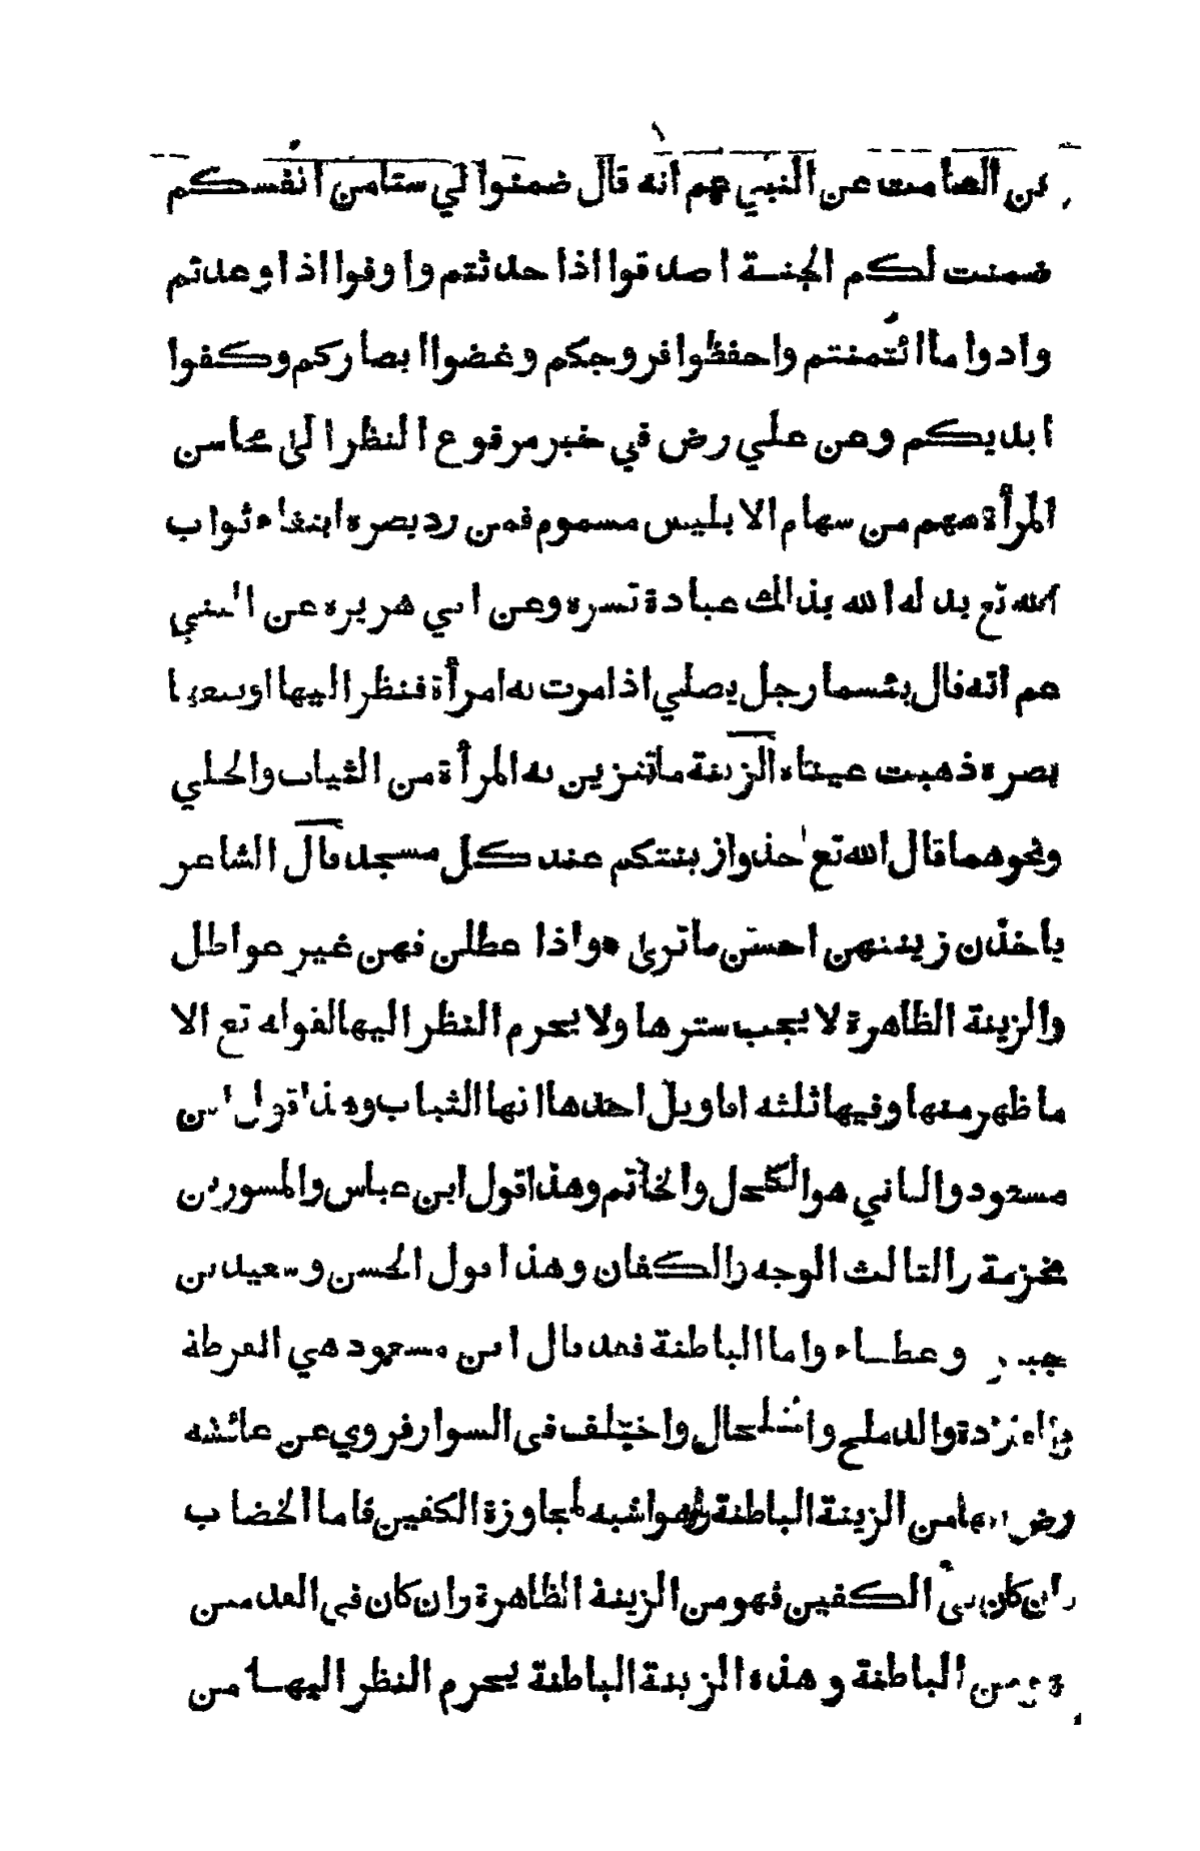 بن الصامت عن النبي عم انه قال ضمنوا لي ستا من انفسكم
ضمنت لكم الجنة اصدقوا اذا حدثتم واوفوا اذا وعدتم
وادوا ما ائتمنتم واحفظوا فروجكم وغضوا ابصاركم وكفوا
ايديكم وعن علي رض في خبر مرفوع النظر الى محاسن
المرأة سهم من سهام الابليس مسموم فمن رد بصره ابتغاء ثواب
الله تع بدله الله بذالك عبادة تسره وعن ابي هريره عن النبي
عم انه قال بئسما رجل يصلي اذا مرت به امرأة فنظر اليها
بصره ذهبت عيناه الزينة ما تتزين به المرأة من الثياب والحلي
ونحوهما قال الله تع خذوا زينتكم عند كل مسجد قال الشاعر
ياخذن زينتهن احسن ما ترى واذا عطلن فهن غير عواطل
والزينة الظاهرة لا يجب سترها ولا يحرم النظر اليها لقوله تع الا
ما ظهر منها وفيها ثلثه اقاويل احدها انها الثياب وهذا قول ابن
مسعود والثاني هو الكحل والخاتم وهذا قول ابن عباس والمسور بن
مخزمة والثالث الوجه والكفان وهذا قول الحسن وسعيد بن
جبير وعطاء واما الباطنة فقد قال ابن مسعود هي القرطة
والدملج والخلخال واختلف في السوار فروي عن عائشه
رض انها من الزينة الباطنة وهو اشبه لمجاوزة الكفين فاما الخضاب
ان كان في الكفين فهو من الزينة الظاهرة وان كان في القدمين
من الباطنة وهذه الزينة الباطنة يحرم النظر اليها من